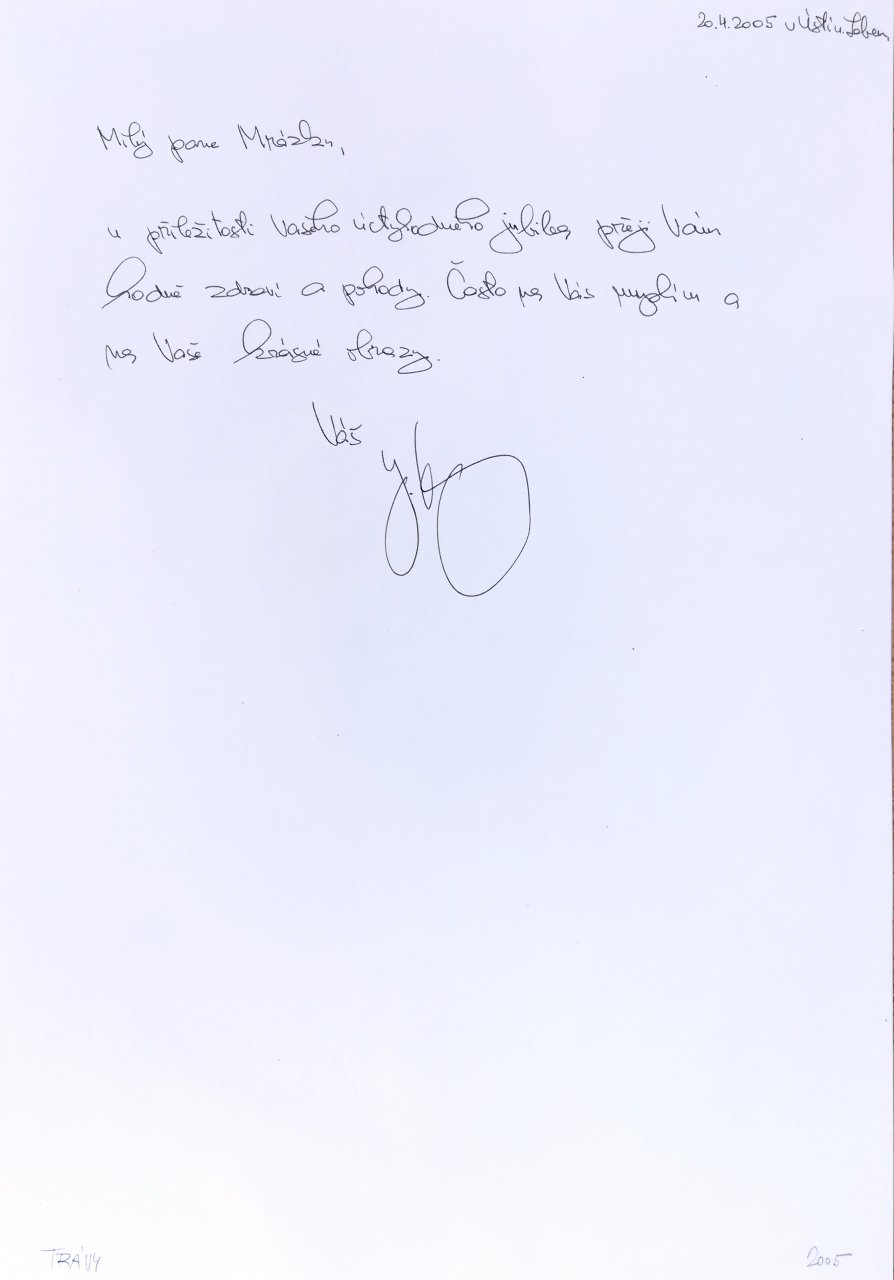 20.4.2005 v Ústí n. Labem
Milý pane Mrázku,
u příležitosti Vašeho úctyhodného jubilea přeji Vám
hodně zdraví a pohody. Často na Vás myslím a
na Vaše krásné obrazy.
Váš
TRÁVY
2005